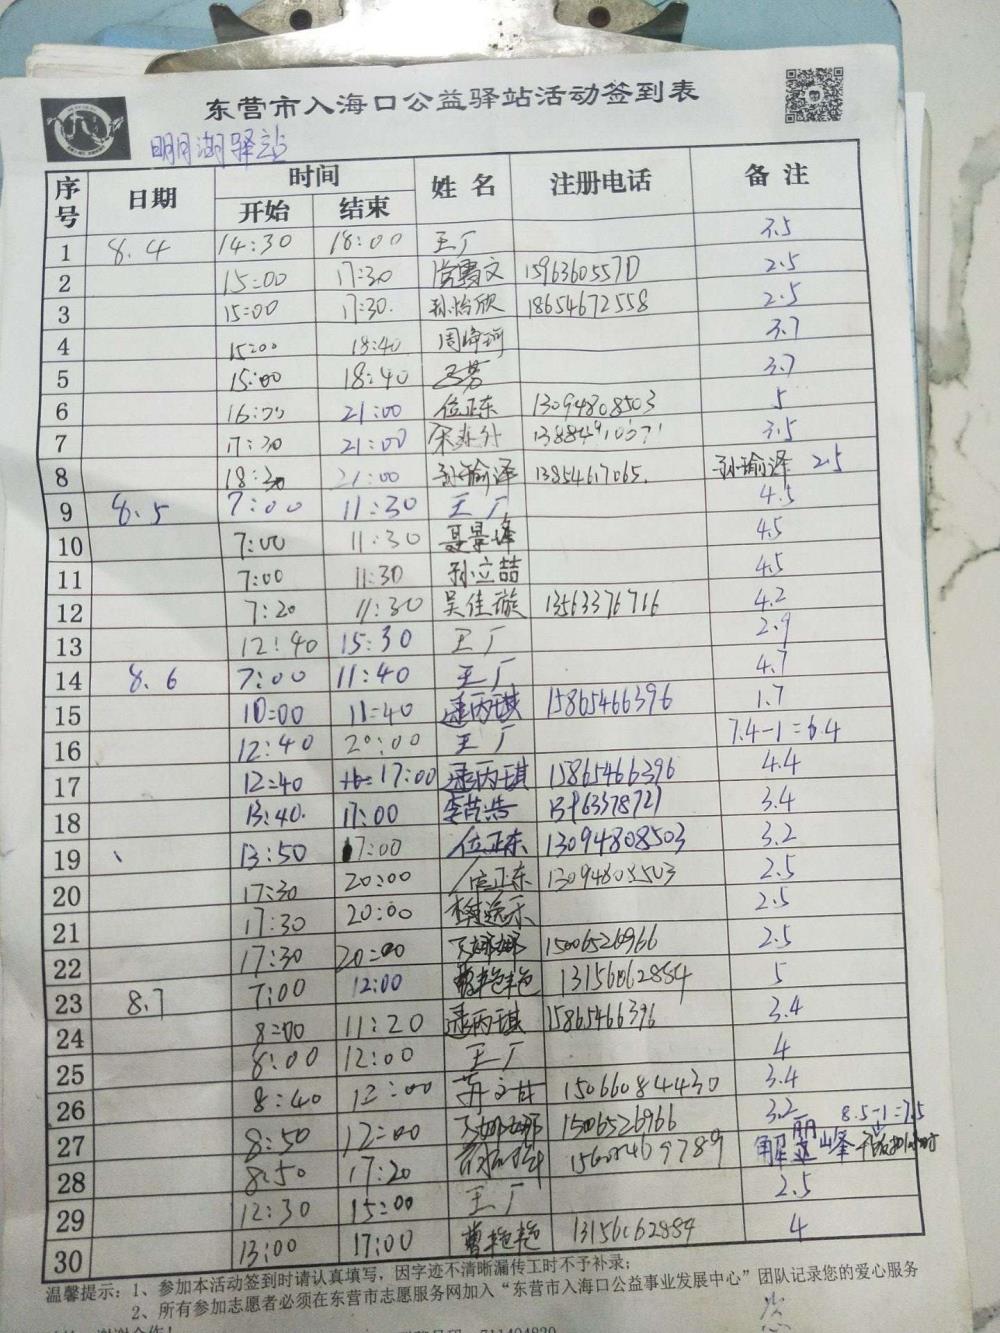 东营市入海口公益驿站活动签到表
明月湖驿站
序号 日期 时间 姓名 注册电话 备注
开始 结束
1 8.4 14:30 18:00 王广 3.5
2 15:00 17:30 1596360557D 2.5
3 15:00 17:30. 孙怡欣 18654672558 2.5
4 15:00 18:40 3.7
5 15:00 18:40 3.7
6 16:00 21:00 位正东 13094808503 5
7 17:30 21:00 3.5
8 18:30 21:00 孙瑜泽 13854617065. 孙瑜泽 2.5
9 8.5 7:00 11:30 王广 4.5
10 7:00 11:30 聂景峰 4.5
11 7:00 11:30 孙立喆 4.5
12 7:20 11:30 吴佳璇 13563376716 4.2
13 12:40 15:30 王广 2.9
14 8.6 7:00 11:40 王广 4.7
15 10:00 11:40 15865466396 1.7
16 12:40 20:00 王广 7.4-1=6.4
17 12:40 17:00 15865466396 4.4
18 13:40. 17:00 3.4
19 13:50 17:00 位正东 13094808503 3.2
20 17:30 20:00 位正东 13094808503 2.5
21 17:30 20:00 2.5
22 17:30 20:00 15006526966 2.5
23 8.7 7:00 12:00 曹艳艳 13156062884 5
24 8:00 11:20 15865466396 3.4
25 8:00 12:00 王广 4
26 8:40 12:00 15066084430 3.4
27 8:50 12:00 15006526966 3.2
28 8:50 17:20 解丽峰 8.5-1=7.5
29 12:30 15:00 王广 2.5
30 13:00 17:00 曹艳艳 13156062884 4
温馨提示：1、参加本活动签到时请认真填写，因字迹不清晰漏传工时不予补录；
2、所有参加志愿者必须在东营市志愿服务网加入“东营市入海口公益事业发展中心”团队记录您的爱心服务